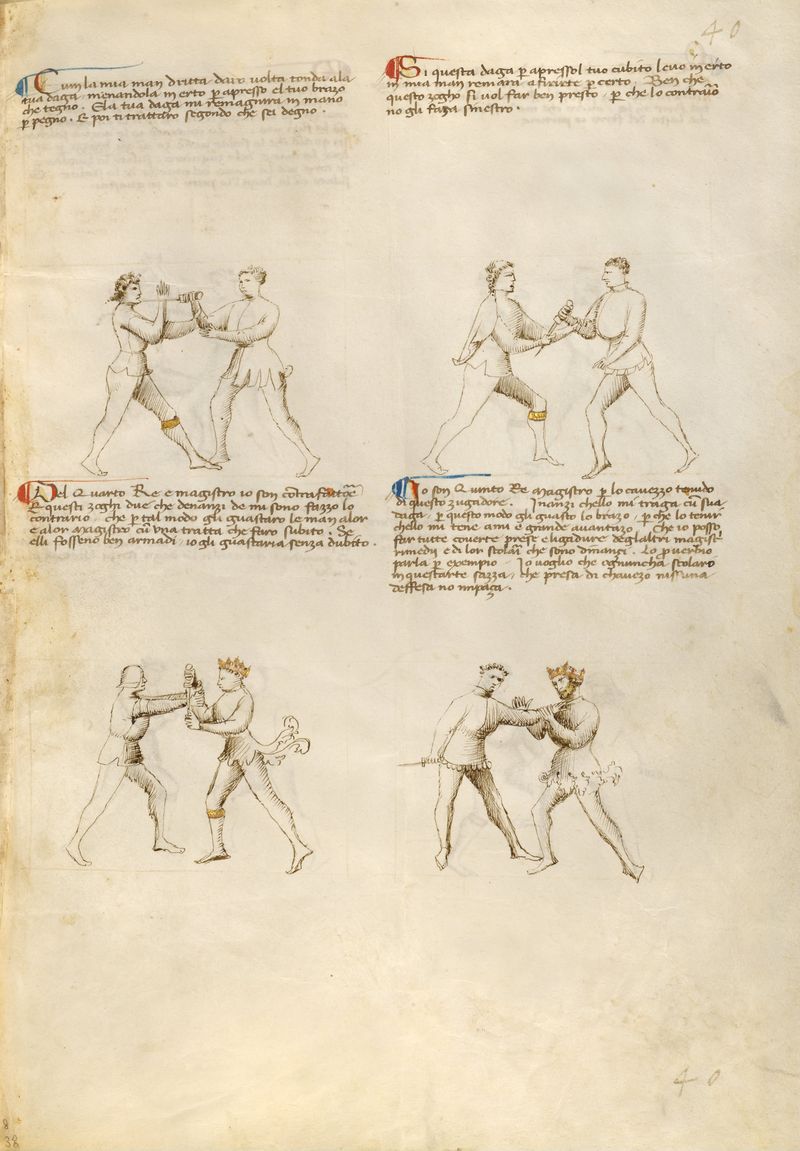 40
Cum la mia man dritta daro volta tonda ala
tua daga, menandola in erto p apresso el tuo brazo
che tegno. E la tua daga mi remagnira in mano
p pegno. E poi ti trattaro segondo che sei degno.
Si questa daga p apressol tuo cubito levo in erto
in mia man remara a firirte p certo. Ben che
questo zogho si vol far ben presto, p che lo contraio
no gli faza sinestro.
Del Quarto Re e magistro io son contrafattore
E questi zoghi due che denanzi de mi sono fazzo lo
contrario, che p tal modo gli guastaro le man alor
e alor magistro cu una tratta che faro subito. Se
elli fosseno ben armadi, io gli guastaria senza dubito.
Io son Quinto Re Magistro p lo cavezzo tenudo
di questo zugadore. Inanzi chello mi traga cu sua
daga, p questo modo gli guasto lo brazo, p che lo tenir
chello mi tene a mi e grande avantazo. Che io posso
far tutte coverte prese e ligadure degl altri magistri
rimedii e di lor scolari che sono dinanzi. Lo pverbio
parla p exempio. Io voglio che ognuncha scolaro
in quest arte sazza, che presa di chavezo nissuna
deffesa no impaza.
40
8
38